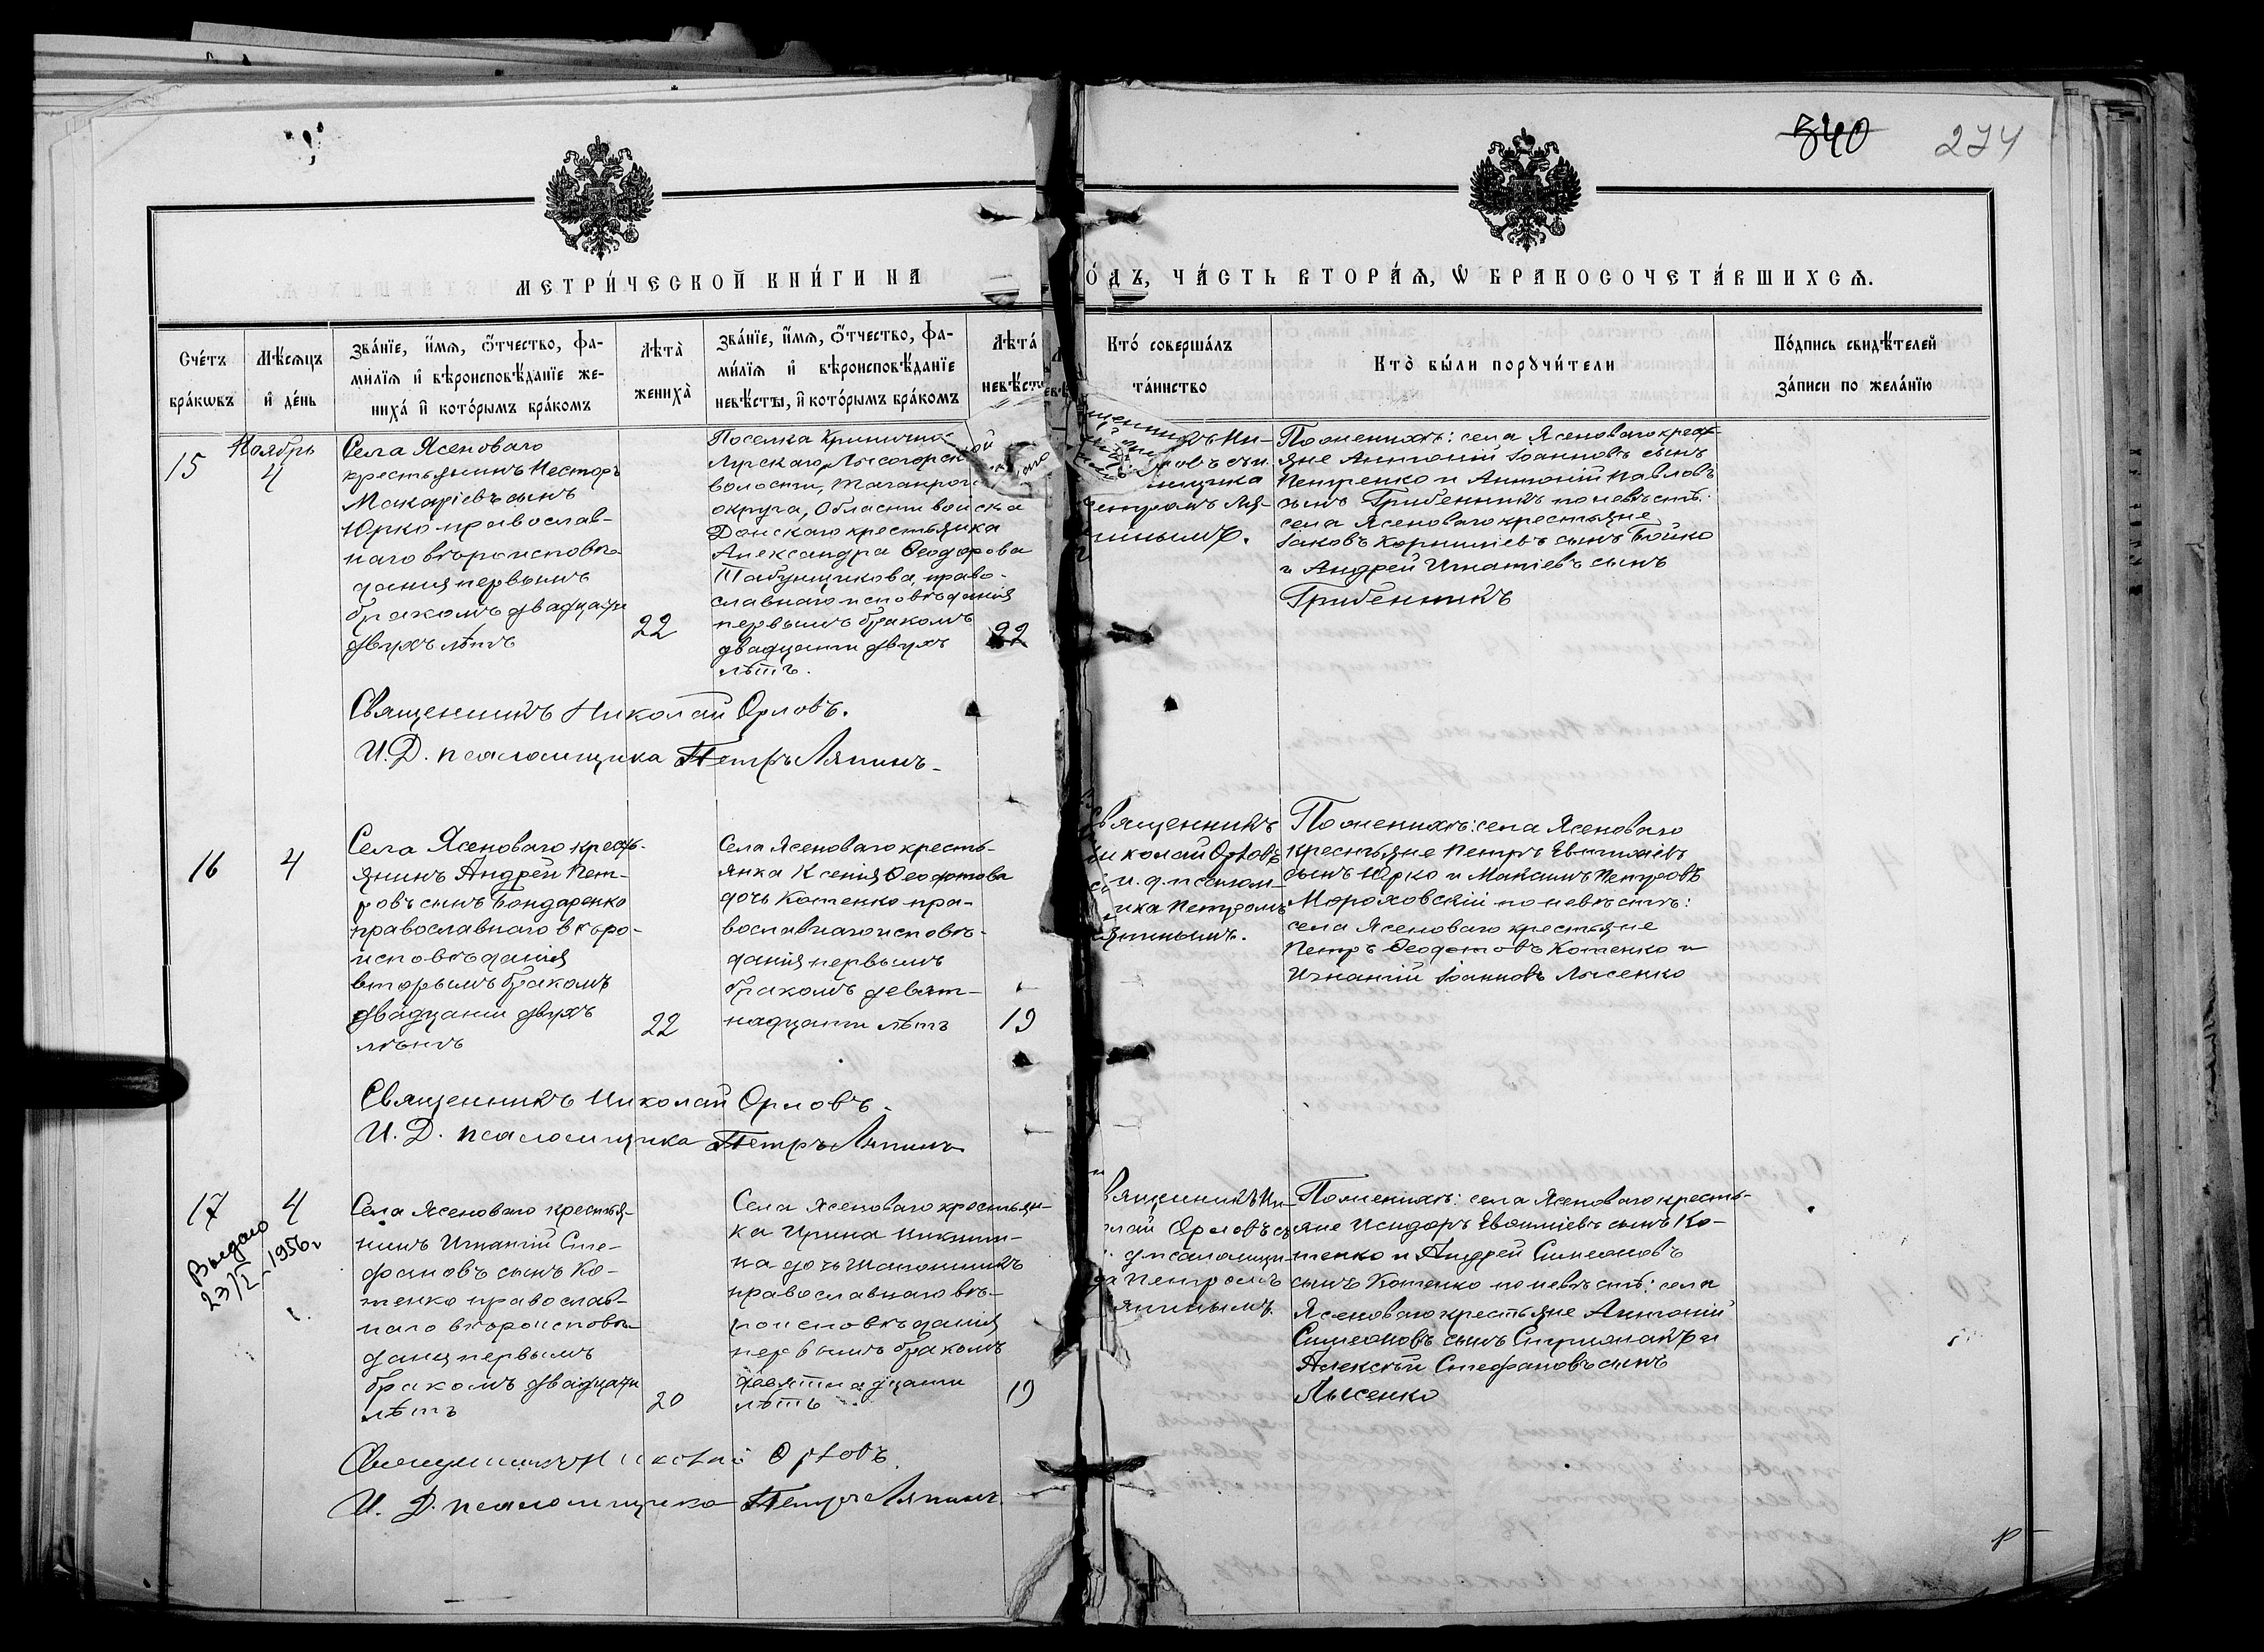 340 274
МЕТРИ́ЧЕСКОЙ КНИ́ГИ НА
О́ДЪ, ЧА́СТЬ ВТОРА́Ѧ, Ѡ҆ БРАКОСОЧЕТА́ВШИХСѦ.
Сче́тъ
бра́кѡвъ
Мѣ́сѧцъ
и҆ де́нь
Зва́нїе, и҆́мѧ, ѻ҆́тчество, фа-
ми́лїѧ и҆ вѣроисповѣ́данїе же-
ниха́ и҆ кото́рымъ бра́комъ
Лѣта̀
жениха̀
Зва́нїе, и҆́мѧ, ѻ҆́тчество, фа-
ми́лїѧ и҆ вѣроисповѣ́данїе
невѣ́сты, и҆ кото́рымъ бра́комъ
Лѣта́
невѣ́сты
Кто́ соверша́лъ
та́инство
Кто̀ бы́ли порꙋчи́тели
По́дпись свидѣ́телей
за́писи по жела́нїю
15
Ноябрь
4
Села Ясеноваго
крестьянинъ Несторъ
Макаріевъ сынъ
Юрко православ-
наго вѣроисповѣ-
данія первымъ
бракомъ двадцати
двухъ лѣтъ
22
Поселка Кринично-
Лугскаго, Лысогорской
волости, Таганрог
округа, Области войска
Донскаго крестьянка
Александра Ѳеодорова
Табунщикова, право-
славнаго исповѣданія
первымъ бракомъ
двадцати двухъ
лѣтъ.
22
ъ Ни-
овъ съ и.
мщика
Петромъ Ля-
пинымъ.
По женихѣ: села Ясеноваго крест-
яне Антоній Іоанновъ сынъ
Петренко и Антоній Павловъ
сынъ Грибенникъ по невѣстѣ:
села Ясеноваго крестьяне
Іаковъ Корниліевъ сынъ Бойко
и Андрей Игнатіевъ сынъ
Грибенникъ
Священникъ Николай Орловъ.
И. Д. псаломщика Петръ Ляпинъ.
16
4
Села Ясеноваго кресть-
янинъ Андрей Пет-
ровъ сынъ Бондаренко
православнаго вѣро-
исповѣданія
вторымъ бракомъ
двадцати двухъ
лѣтъ
22
Села Ясеноваго кресть-
янка Ксенія Ѳеодотова
дочь Котенко пра-
вославнаго исповѣ-
данія первымъ
бракомъ девят-
надцати лѣтъ
19
вященникъ
Николай Орловъ
съ и. д. псалом-
щика Петромъ
Ляпинымъ.
По женихѣ: села Ясеноваго
крестьяне Петръ Евтихіевъ
сынъ Юрко и Максимъ Петровъ
Мороховскій по невѣстѣ:
села Ясеноваго крестьяне
Петръ Ѳеодотовъ Котенко и
Игнатій Іоанновъ Лысенко
Священникъ Николай Орловъ.
И. Д. псаломщика Петръ Ляпинъ
17
4
Выдано
23/I-1956г
Села Ясеноваго крестья-
нинъ Игнатій Сте-
фановъ сынъ Ко-
тенко православ-
наго вѣроисповѣ-
данія первымъ
бракомъ двадцати
лѣтъ
20
Села Ясеноваго крестьян-
ка Ирина Никити-
на дочь
православнаго вѣ-
роисповѣданія
первымъ бракомъ
девятнадцати
лѣтъ
19
вященникъ Ни-
олай Орловъ съ
д псаломщи-
ка Петромъ
япинымъ.
По женихѣ: села Ясеноваго кресть-
яне Исидоръ Евѳиміевъ сынъ Ко-
тенко и Андрей Симеоновъ
сынъ Котенко по невѣстѣ: села
Ясеноваго крестьяне Антоній
Симеоновъ сынъ и
Алексѣй Стефановъ сынъ
Лысенко
Священникъ Николай Орловъ.
И. Д. псаломщика Петръ Ляпинъ.